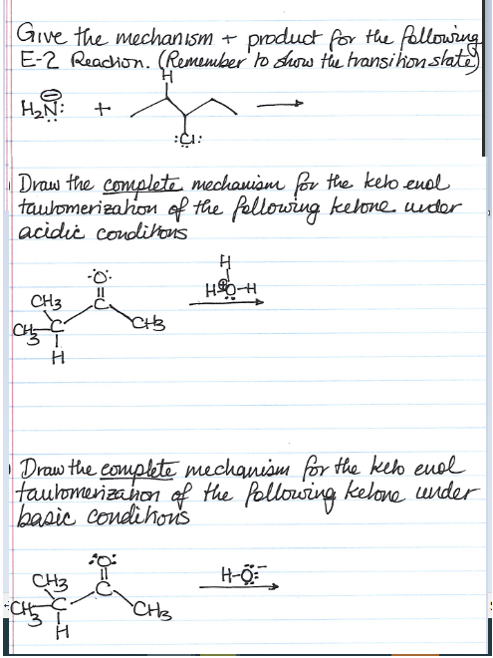 Give the mechanism + product for the following
E-2 Reaction. (Remember to show the transition state)
H
H₂N: ⊖ +
:Cl:
Draw the complete mechanism for the keto enol
tautomerization of the following ketone under
acidic conditions
H
:O: H-O-H ⊕
CH3 C
CH3-C CH3
H
Draw the complete mechanism for the keto enol
tautomerization of the following ketone under
basic conditions
:O: H-O:⁻
CH3 C
CH3-C CH3
H